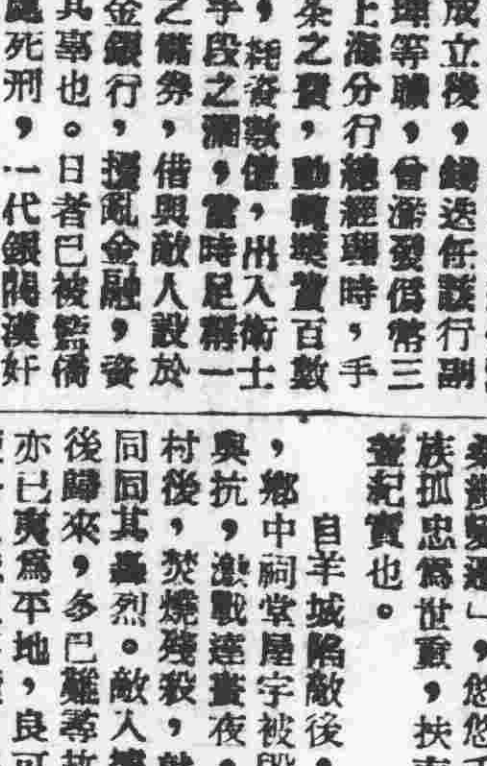 成立後，錢迭任該行副
理等職，曾濫發僞幣三
上海分行總經理時，手
之費，動輒獎賞百數
，耗資數億，出入衛士
手段之濶，當時足稱一
之儲券，借與敵人設於
金銀行，擾亂金融，資
其事也。日者已被監
死刑，一代銀閥漢奸
」，悠悠
族孤忠爲世重，扶
蓋紀實也。
自羊城陷敵後，
，鄉中祠堂屋宇被毀
與抗，激戰達晝夜，
村後，焚燒殘殺，
同同其轟烈。敵人
後歸來，多已難尋故
亦已夷爲平地，良可